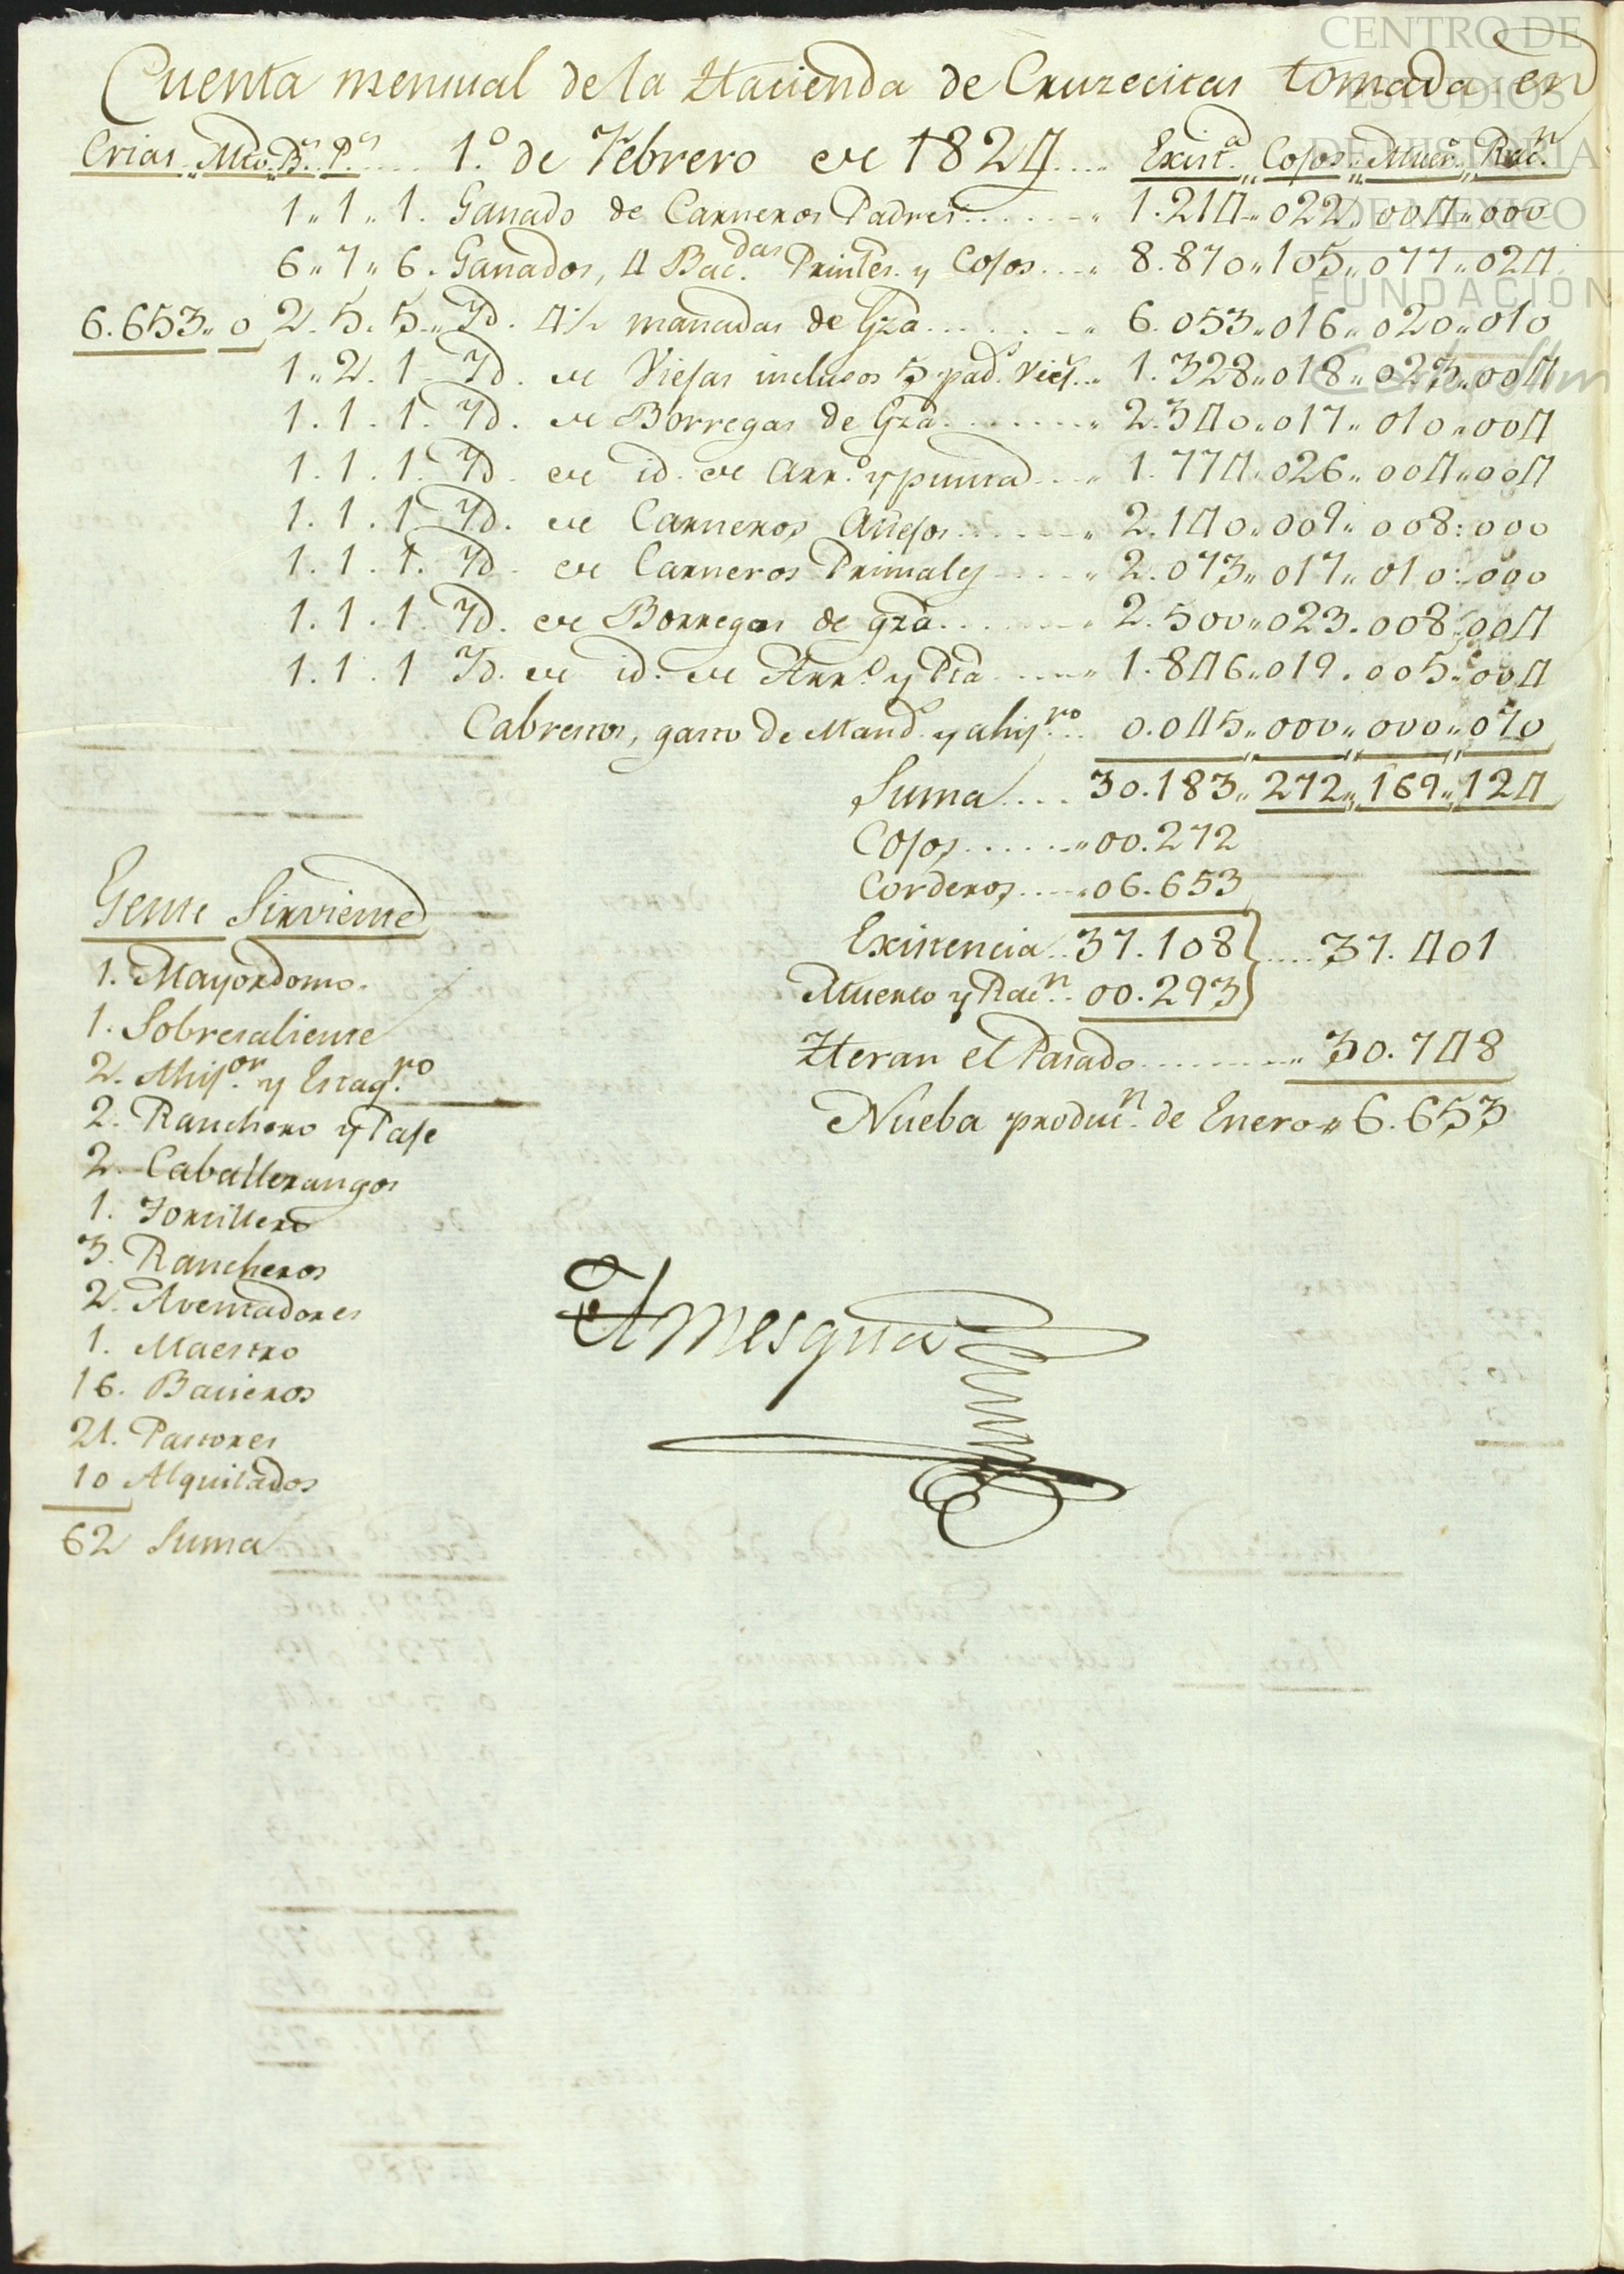 Cuenta mensual de la Hacienda de Cruzecitas tomada en
Crias Mto. Bs. Ps. 1.º de Febrero de 1824 Exist.a Cojos Muer.s Rac.n
1 1 1. Ganado de Carneros Padres 1.214 022 004 000
6 7 6. Ganados, 4 Bac.das Printes. y Cojos 8.870 105 077 024
6.653 0 2. 5. 5 Yd. 4 1/2 manadas de Gza 6.053 016 020 010
1 2. 1 Yd. de Viejas inclusos 5 pad.s Viej.s 1.328 018 023 004
1. 1. 1. Yd. de Borregas de Gza. 2.340 017 010 004
1. 1. 1. Yd. de id. de Arr.o y punta 1.774 026 004 004
1. 1. 1 Yd. de Carneros Añejos 2.140 009 008: 000
1. 1. 1. Yd. de Carneros Primales 2.073 017 010: 000
1. 1. 1. Yd. de Borregas de gza. 2.500 023. 008 004
1. 1. 1 Yd. de id. de Arr.o y Pta 1.846 019. 005 004
Cabrestos, gasto de Mand.s y ahij.ro 0.045 000 000 070
Suma 30.183 272 169 124
Cojos 00.272
Corderos 06.653
Existencia 37.108 37.401
Muerto y Rac.n 00.293
Heran el Pasado 30.748
Nueba produc.n de Enero 6.653
Gente Sirviente
1. Mayordomo.
1. Sobresaliente
2. Ahij.or y Estaq.ro
2. Ranchero y Paje
2. Caballerangos
1. Tortillero
3. Rancheros
2. Aventadores
1. Maestro
16. Bacieros
21. Pastores
10 Alquilados
62 Suma
Amesquita
CENTRO DE
ESTUDIOS
DE HISTORIA
DE MEXICO
FUNDACIÓN
Carlos Slim